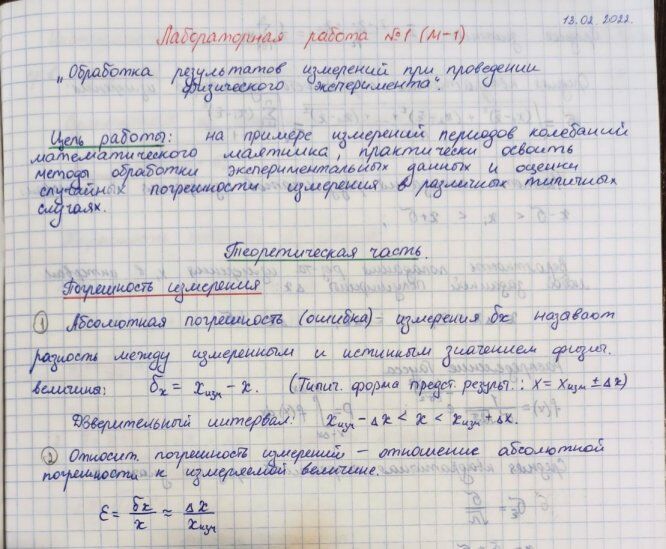 13.02.2022.
Лабораторная работа №1 (М-1)
„Обработка результатов измерений при проведении
физического эксперимента".
Цель работы: на примере измерений периодов колебаний
математического маятника, практически освоить
методы обработки экспериментальных данных и оценки
случайных погрешности измерения в различных типичных
случаях.
Теоретическая часть.
Погрешность измерения
① Абсолютная погрешность (ошибка) - измерения δx называют
разность между измеренным и истинным значением физич.
величины: δx = xизм - x. (Типич. форма предст. результ.: x = xизм ± Δx)
Доверительный интервал: xизм - Δx < x < xизм + Δx.
② Относит. погрешность измерений - отношение абсолютной
погрешности к измеряемой величине.
ε = δx/x ≈ Δx/xизм